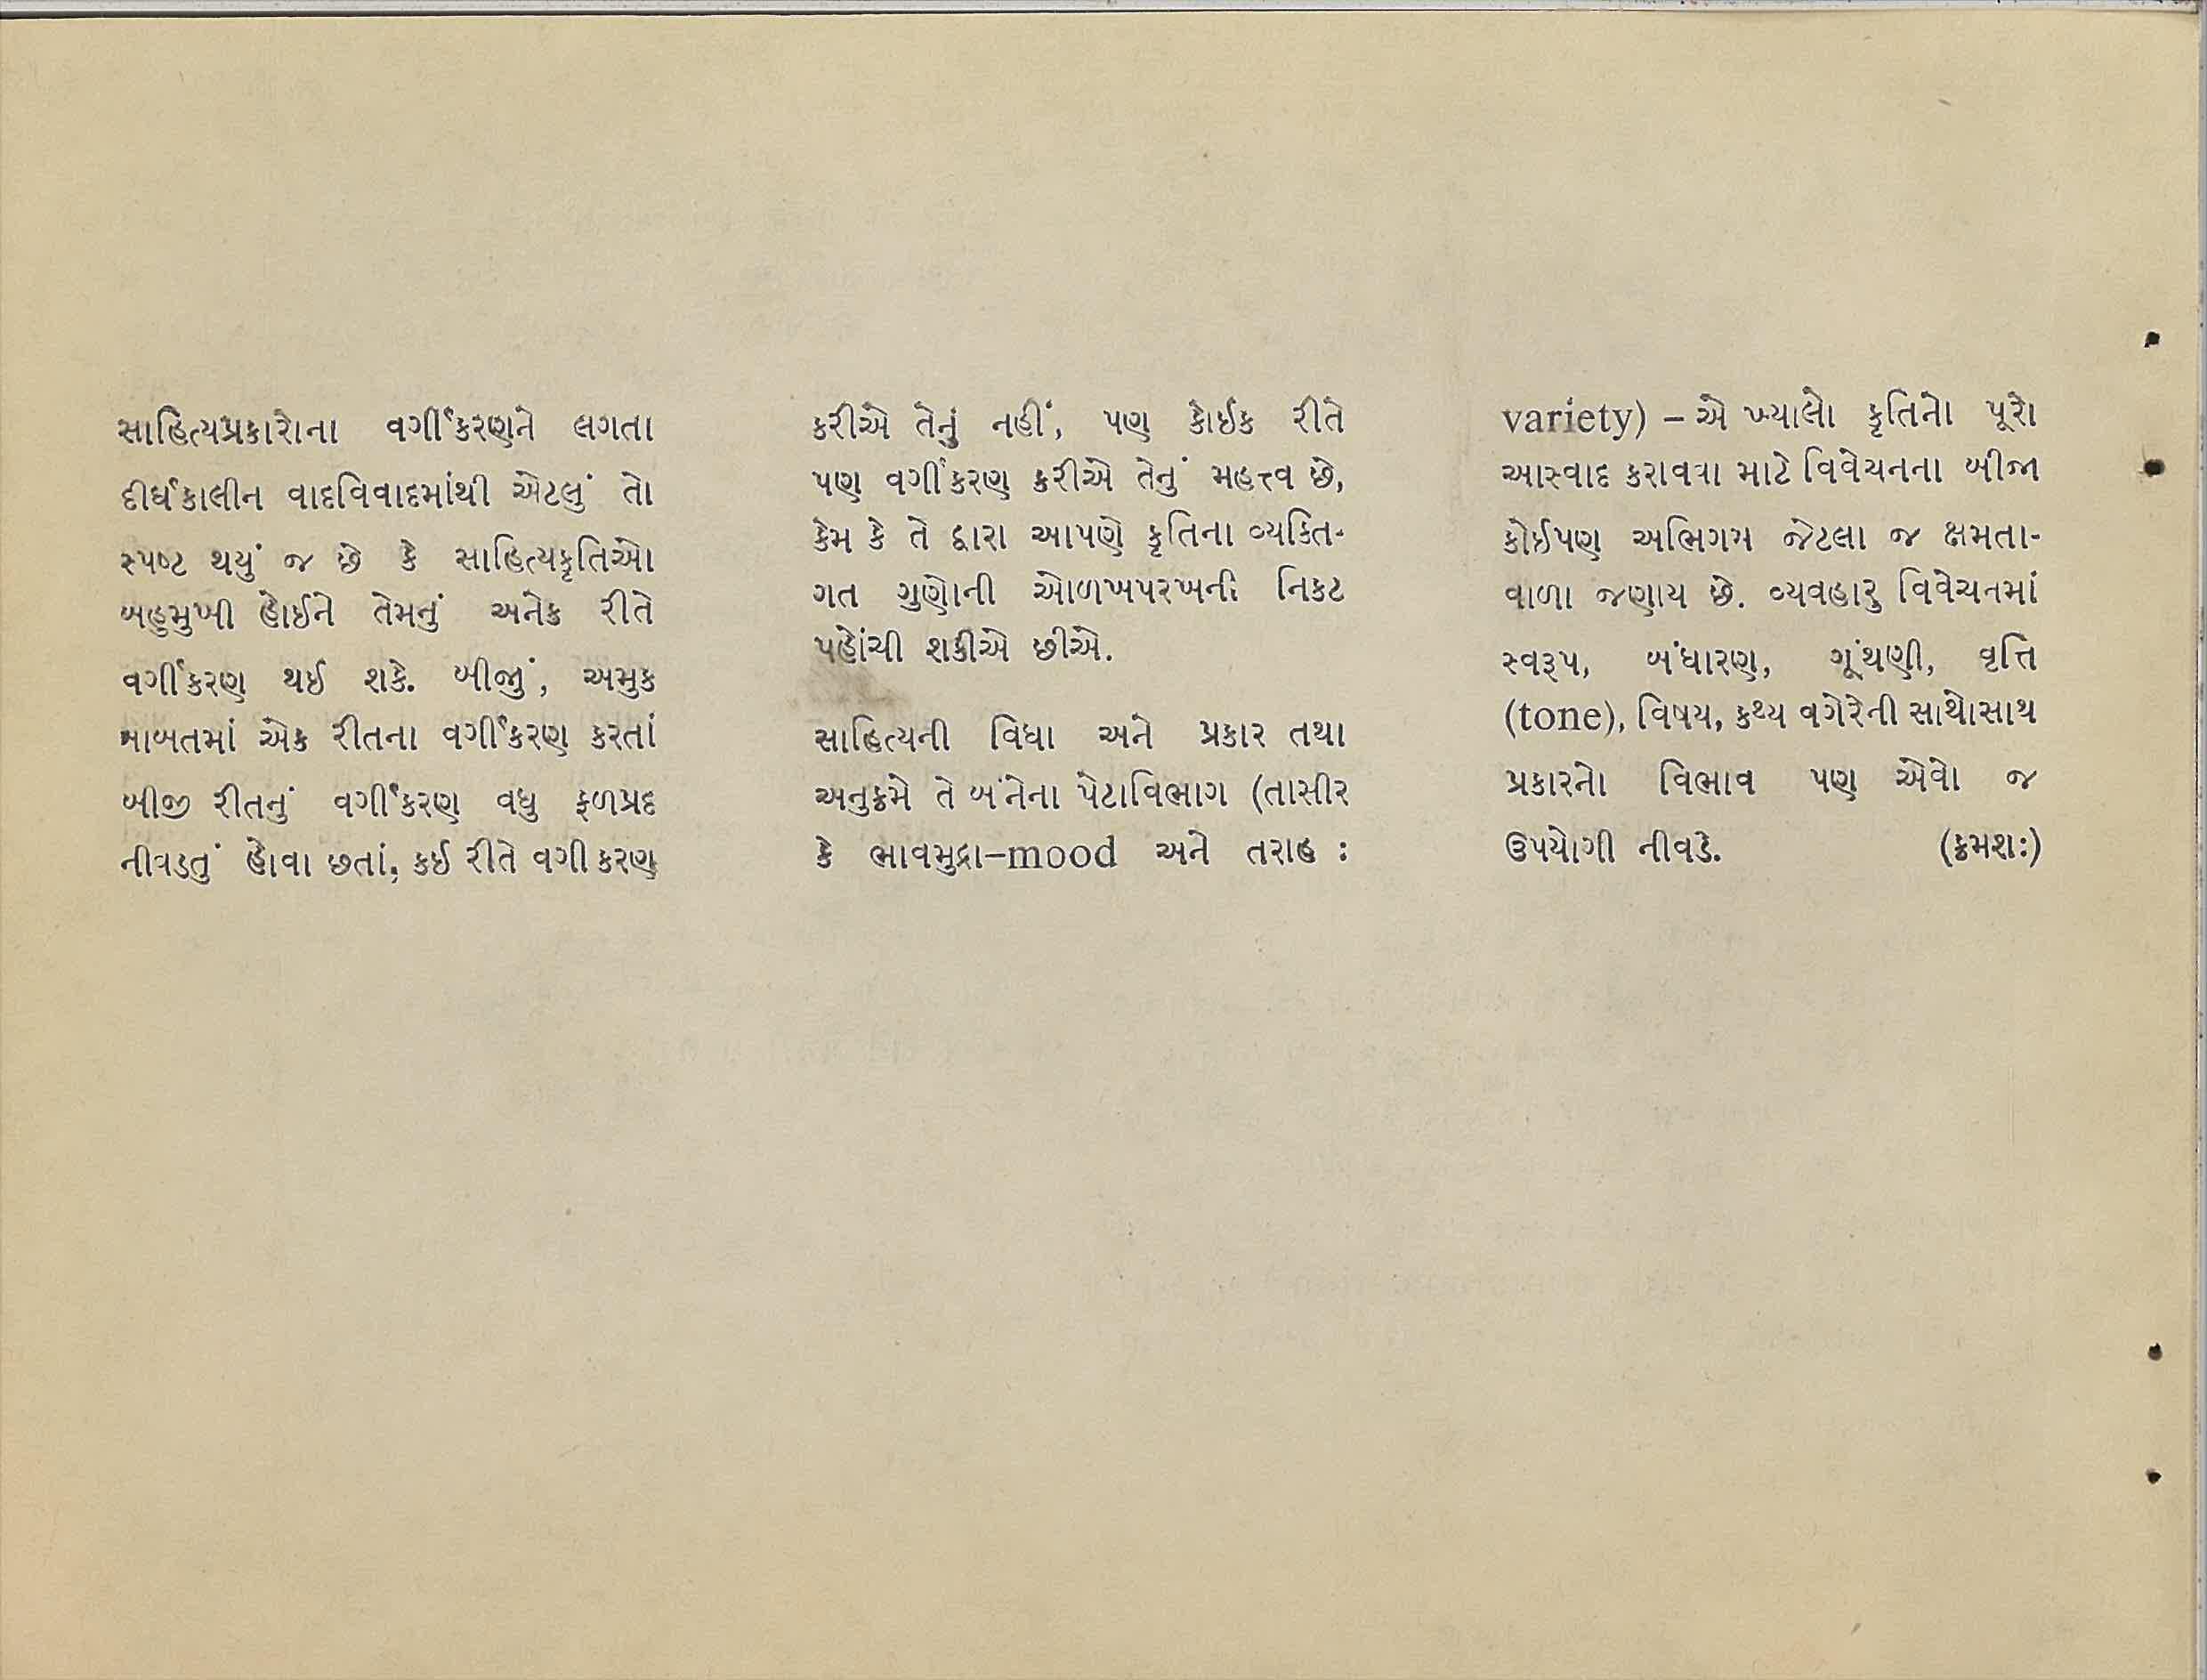 સાહિત્યપ્રકારોના વર્ગીકરણને લગતા
દીર્ઘકાલીન વાદવિવાદમાંથી એટલું તો
સ્પષ્ટ થયું જ છે કે સાહિત્યકૃતિઓ
બહુમુખી હોઈને તેમનું અનેક રીતે
વર્ગીકરણ થઈ શકે. બીજું, અમુક
બાબતમાં એક રીતના વર્ગીકરણ કરતાં
બીજી રીતનું વર્ગીકરણ વધુ ફળપ્રદ
નીવડતું હોવા છતાં, કઈ રીતે વર્ગીકરણ
કરીએ તેનું નહીં, પણ કોઈક રીતે
પણ વર્ગીકરણ કરીએ તેનું મહત્ત્વ છે,
કેમ કે તે દ્વારા આપણે કૃતિના વ્યકિત-
ગત ગુણોની ઓળખપરખની નિકટ
પહોંચી શકીએ છીએ.
સાહિત્યની વિધા અને પ્રકાર તથા
અનુક્રમે તે બંનેના પેટાવિભાગ (તાસીર
કે ભાવમુદ્રા–mood અને તરાહ :
variety) – એ ખ્યાલો કૃતિનો પૂરો
આસ્વાદ કરાવવા માટે વિવેચનના બીજા
કોઈપણ અભિગમ જેટલા જ ક્ષમતા-
વાળા જણાય છે. વ્યવહારુ વિવેચનમાં
સ્વરૂપ, બંધારણ, ગૂંથણી, વૃત્તિ
(tone), વિષય, કથ્ય વગેરેની સાથોસાથ
પ્રકારનો વિભાવ પણ એવો જ
ઉપયોગી નીવડે. (ક્રમશઃ)